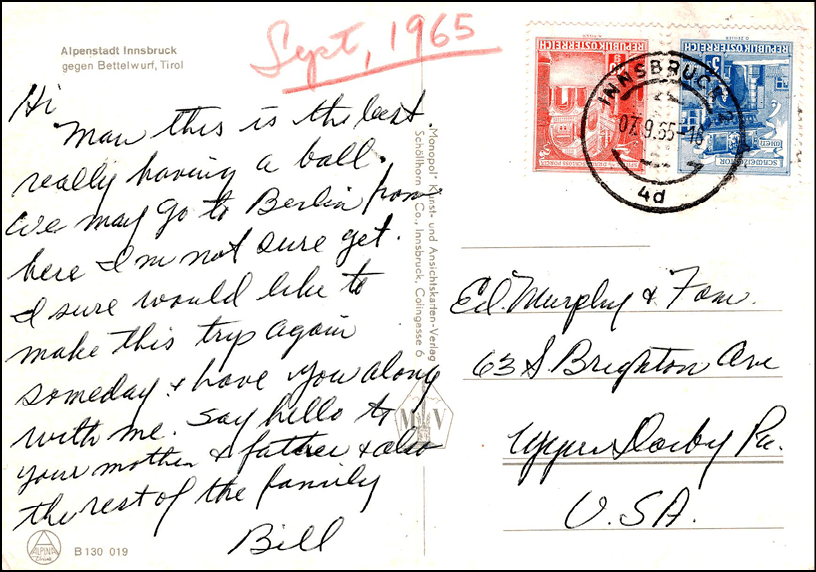 Alpenstadt Innsbruck
gegen Bettelwurf, Tirol
Sept, 1965
Hi
Man this is the best.
really having a ball.
We may go to Berlin from
here I'm not sure yet.
I sure would like to
make this trip again
someday & have you along
with me. Say hello to
your mother & father & also
the rest of the family
Bill
ALPINA
B 130 019
"Monopol" Kunst- und Ansichtskarten-Verlag
Schöllhorn & Co., Innsbruck, Colingasse 6
M V
REPUBLIK ÖSTERREICH
REPUBLIK ÖSTERREICH
S5
SCHWEIZERTOR
WIEN
INNSBRUCK 2
07.9.65-18
4d
Ed. Murphy & Fam.
63 S Brighton Ave
Upper Darby Pa.
U.S.A.